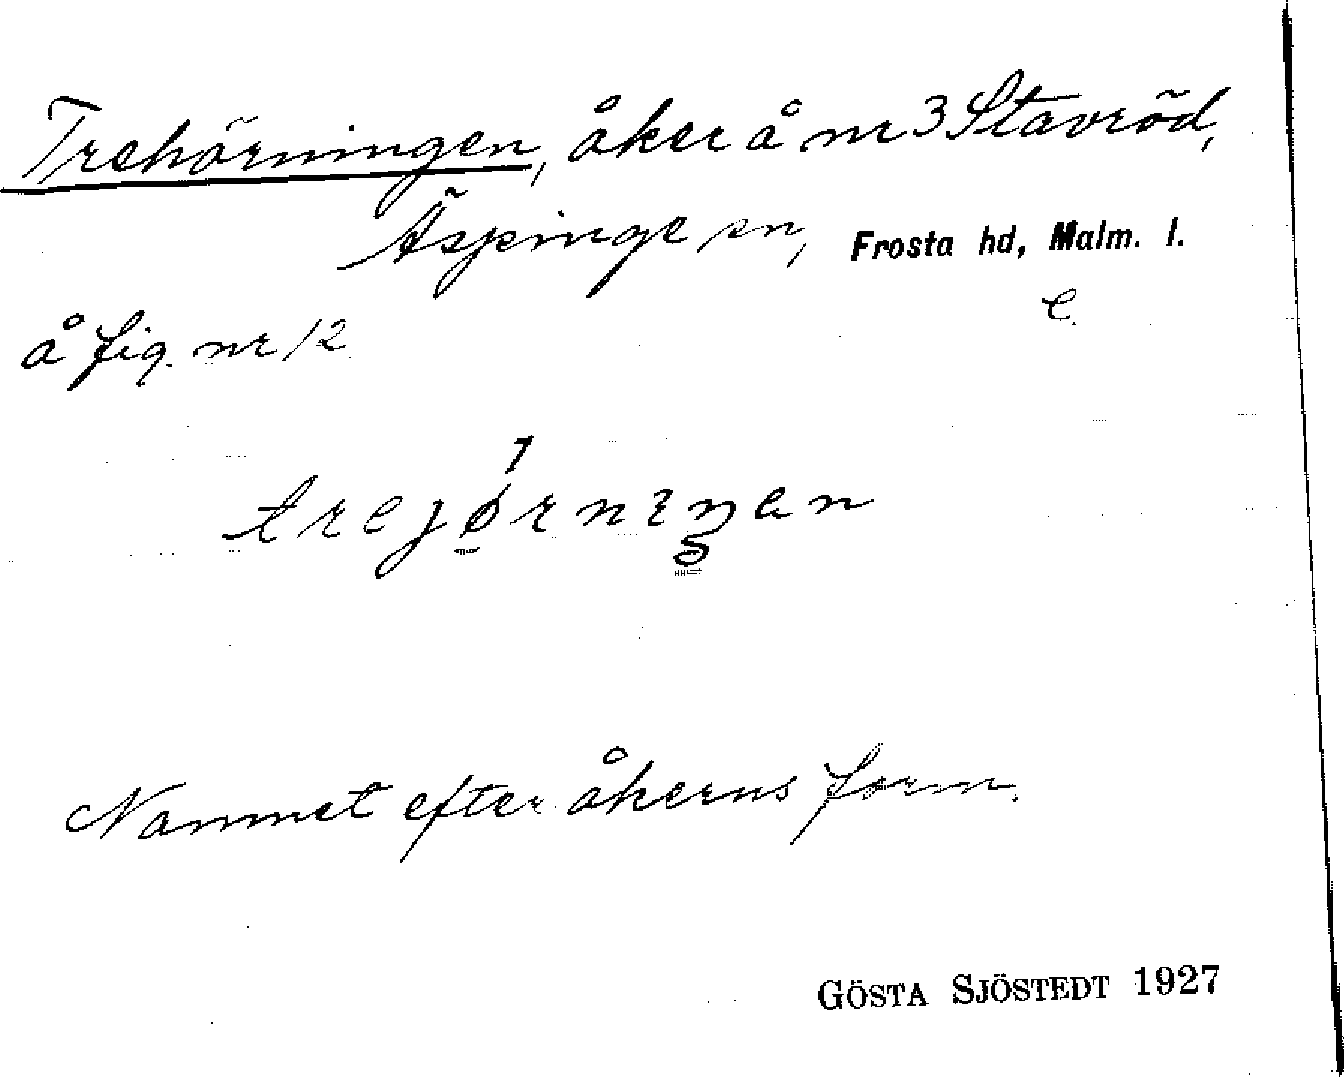 Trehörningen, åker å nr 3 Stavröd,
Äspinge sn, Frosta hd, Malm. l.
C.
å fig. nr 12
trejørnıŋen
Namnet efter åkerns form.
GÖSTA SJÖSTEDT 1927